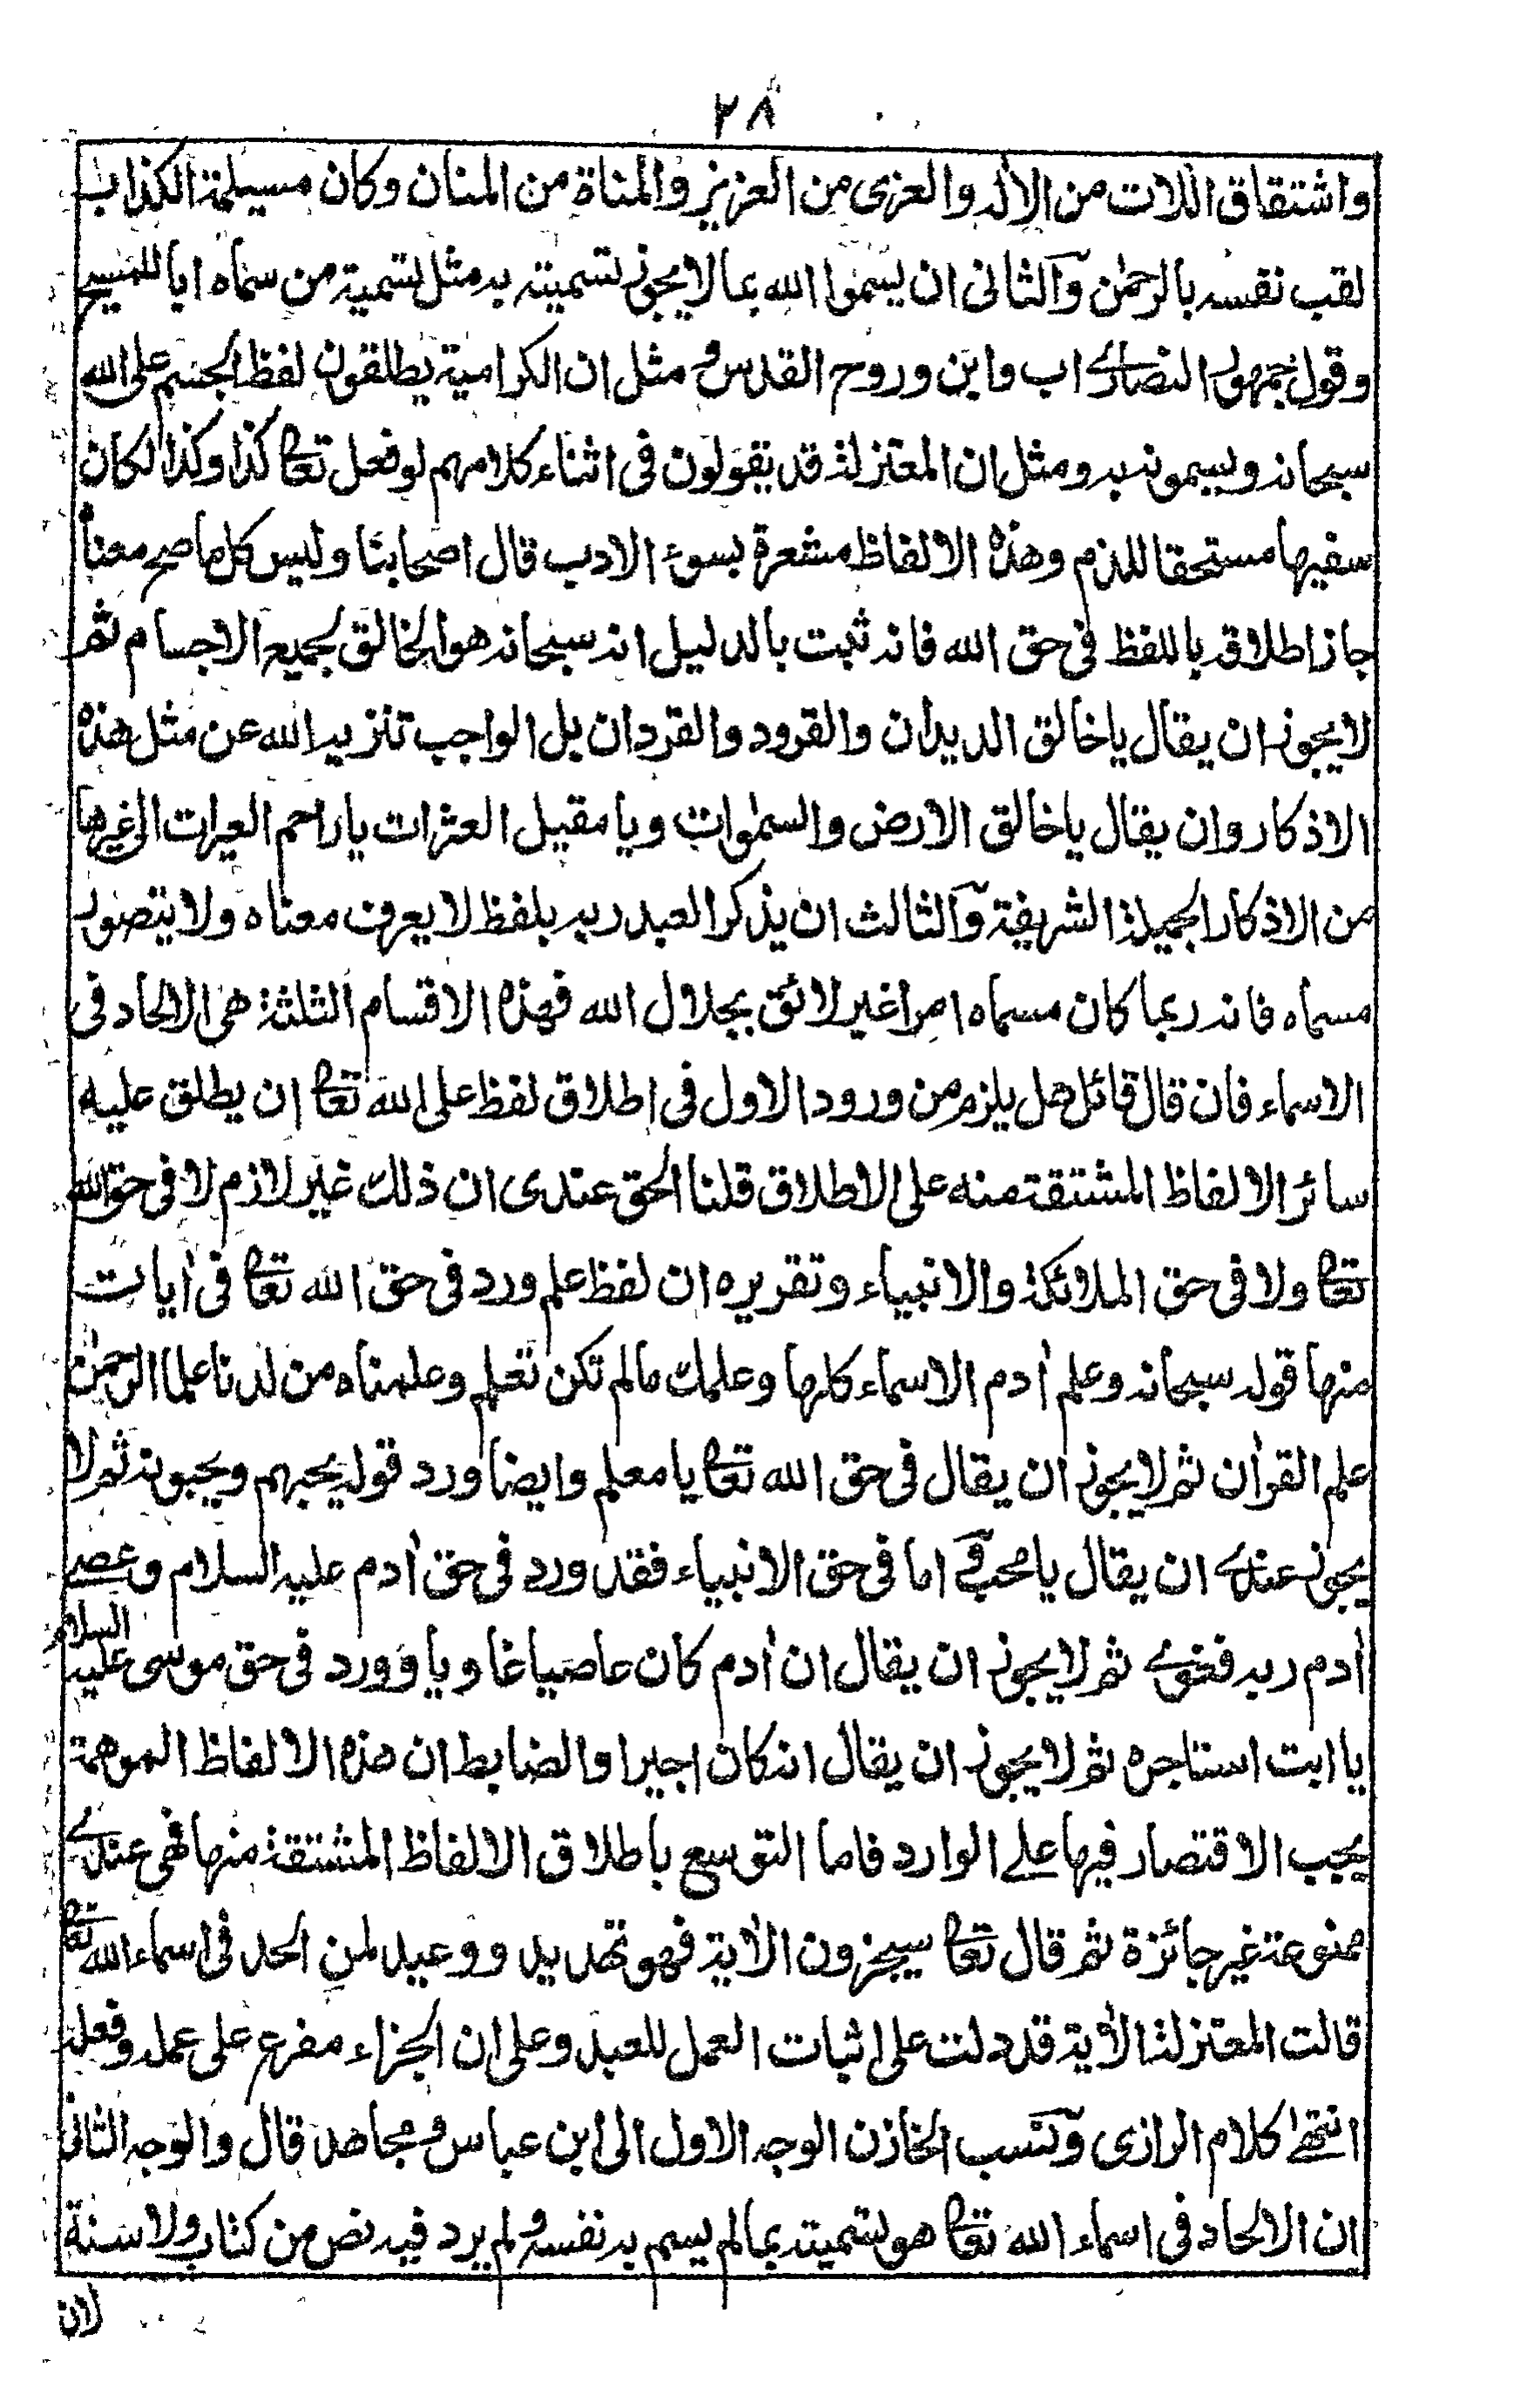 ٢٨
واشتقاق اللات من الاله والعزى من العزيز والمناة من المنان وكان مسيلمة الكذاب
لقب نفسه بالرحمٰن والثانى ان يسموا الله بما لا يجوز تسميته به مثل تسمية من سماه ابا للمسيح
وقول جمهور النصارے اب وابن وروح القدس و مثل ان الكرامية يطلقون لفظ الجسم على الله
سبحانه ويسمونه به ومثل ان المعتزلة قد يقولون فى اثناء كلامهم لو فعل تعا كذا وكذا لكان
سفيها مستحقا للذم وهذه الالفاظ مشعرة بسوء الادب قال اصحابنا وليس كل ما صح معناه
جاز اطلاقه باللفظ فى حق الله فانه ثبت بالدليل انه سبحانه هو الخالق لجميع الاجسام ثم
لا يجوز ان يقال يا خالق الديدان والقرود والقردان بل الواجب تنزيه الله عن مثل هذه
الاذكار وان يقال يا خالق الارض والسمٰوات ويا مقيل العثرات يا راحم العبرات الى غيرها
من الاذكار الجميلة الشريفة والثالث ان يذكر العبد ربه بلفظ لا يعرف معناه ولا يتصور
مسماه فانه ربما كان مسماه امرا غير لائق بجلال الله فهذه الاقسام الثلثة هى الالحاد فى
الاسماء فان قال قائل هل يلزم من ورود الاول فى اطلاق لفظ على الله تعا ان يطلق عليه
سائر الالفاظ المشتقة منه على الاطلاق قلنا الحق عندى ان ذلك غير لازم لا فى حق الله
تعا ولا فى حق الملائكة والانبياء وتقريره ان لفظ علم ورد فى حق الله تعا فى اٰيات
منها قوله سبحانه وعلم اٰدم الاسماء كلها وعلمك مالم تكن تعلم وعلمناه من لدنا علما الرحمٰن
علم القراٰن ثم لا يجوز ان يقال فى حق الله تعا يا معلم وايضا ورد قوله يحبهم ويحبونه ثم لا
يجوز عندے ان يقال يا محب و اما فى حق الانبياء فقد ورد فى حق اٰدم عليه السلام وعصے
اٰدم ربه فغوے ثم لا يجوز ان يقال ان اٰدم كان عاصيا غاويا و ورد فى حق موسى عليه السلام
يا ابت استاجره ثم لا يجوز ان يقال انه كان اجيرا والضابط ان هذه الالفاظ الموهمة
يجب الاقتصار فيها علے الوارد فاما التوسع باطلاق الالفاظ المشتقة منها فهى عندے
ممنوعة غير جائزة ثم قال تعا سيجزون الاٰية فهو تهديد ووعيد لمن الحد فى اسماء الله تعا
قالت المعتزلة الاٰية قد دلت على اثبات العمل للعبد وعلى ان الجزاء مفرع على عمله وفعله
انتهے كلام الرازى ونسب الخازن الوجه الاول الى ابن عباس و مجاهد قال والوجه الثانى
ان الالحاد فى اسماء الله تعا هو تسميته بما لم يسم به نفسه ولم يرد فيه نص من كتاب ولا سنة
لان